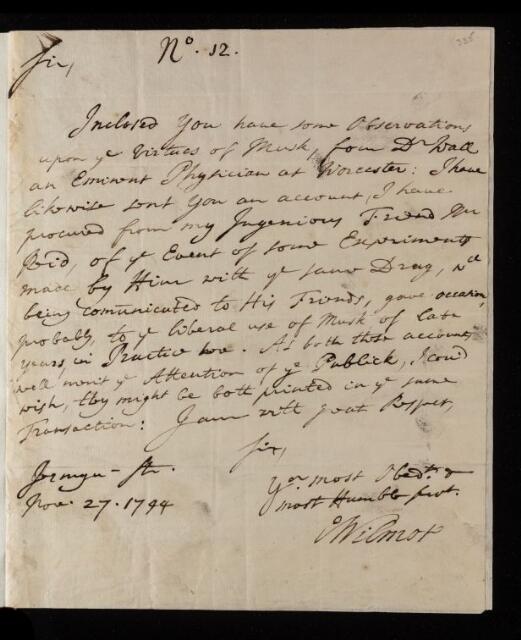 335
N°. 12.
Sir,
Inclosed You have some Observations
upon ye Virtues of Musk, from Dr Wall
an Eminent Physician at Worcester: I have
likewise sent You an account, I have
procured from my Ingenious Friend Mr
Reid, of ye Event of some Experiments
made by Him with ye same Drug, wch
being communicated to His Friends, gave occasion,
probably, to ye liberal use of Musk of late
years, in Practice here. As both these accounts
well merit ye Attention of ye Publick, I coud
wish, they might be both printed in ye same
Transaction: I am with great Respect,
Sir,
Yor most Obedt. &
most Humble servt.
EWilmot
Jermyn-Str.
Nov. 27. 1744